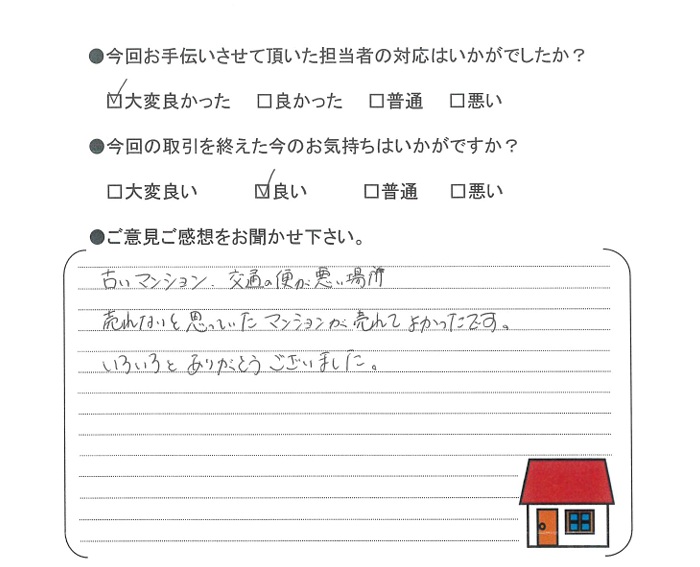 ●今回お手伝いさせて頂いた担当者の対応はいかがでしたか？
☑大変良かった □良かった □普通 □悪い
●今回の取引を終えた今のお気持ちはいかがですか？
□大変良い ☑良い □普通 □悪い
●ご意見ご感想をお聞かせ下さい。
古いマンション、交通の便が悪い場所
売れないと思っていたマンションが売れてよかったです。
いろいろとありがとうございました。